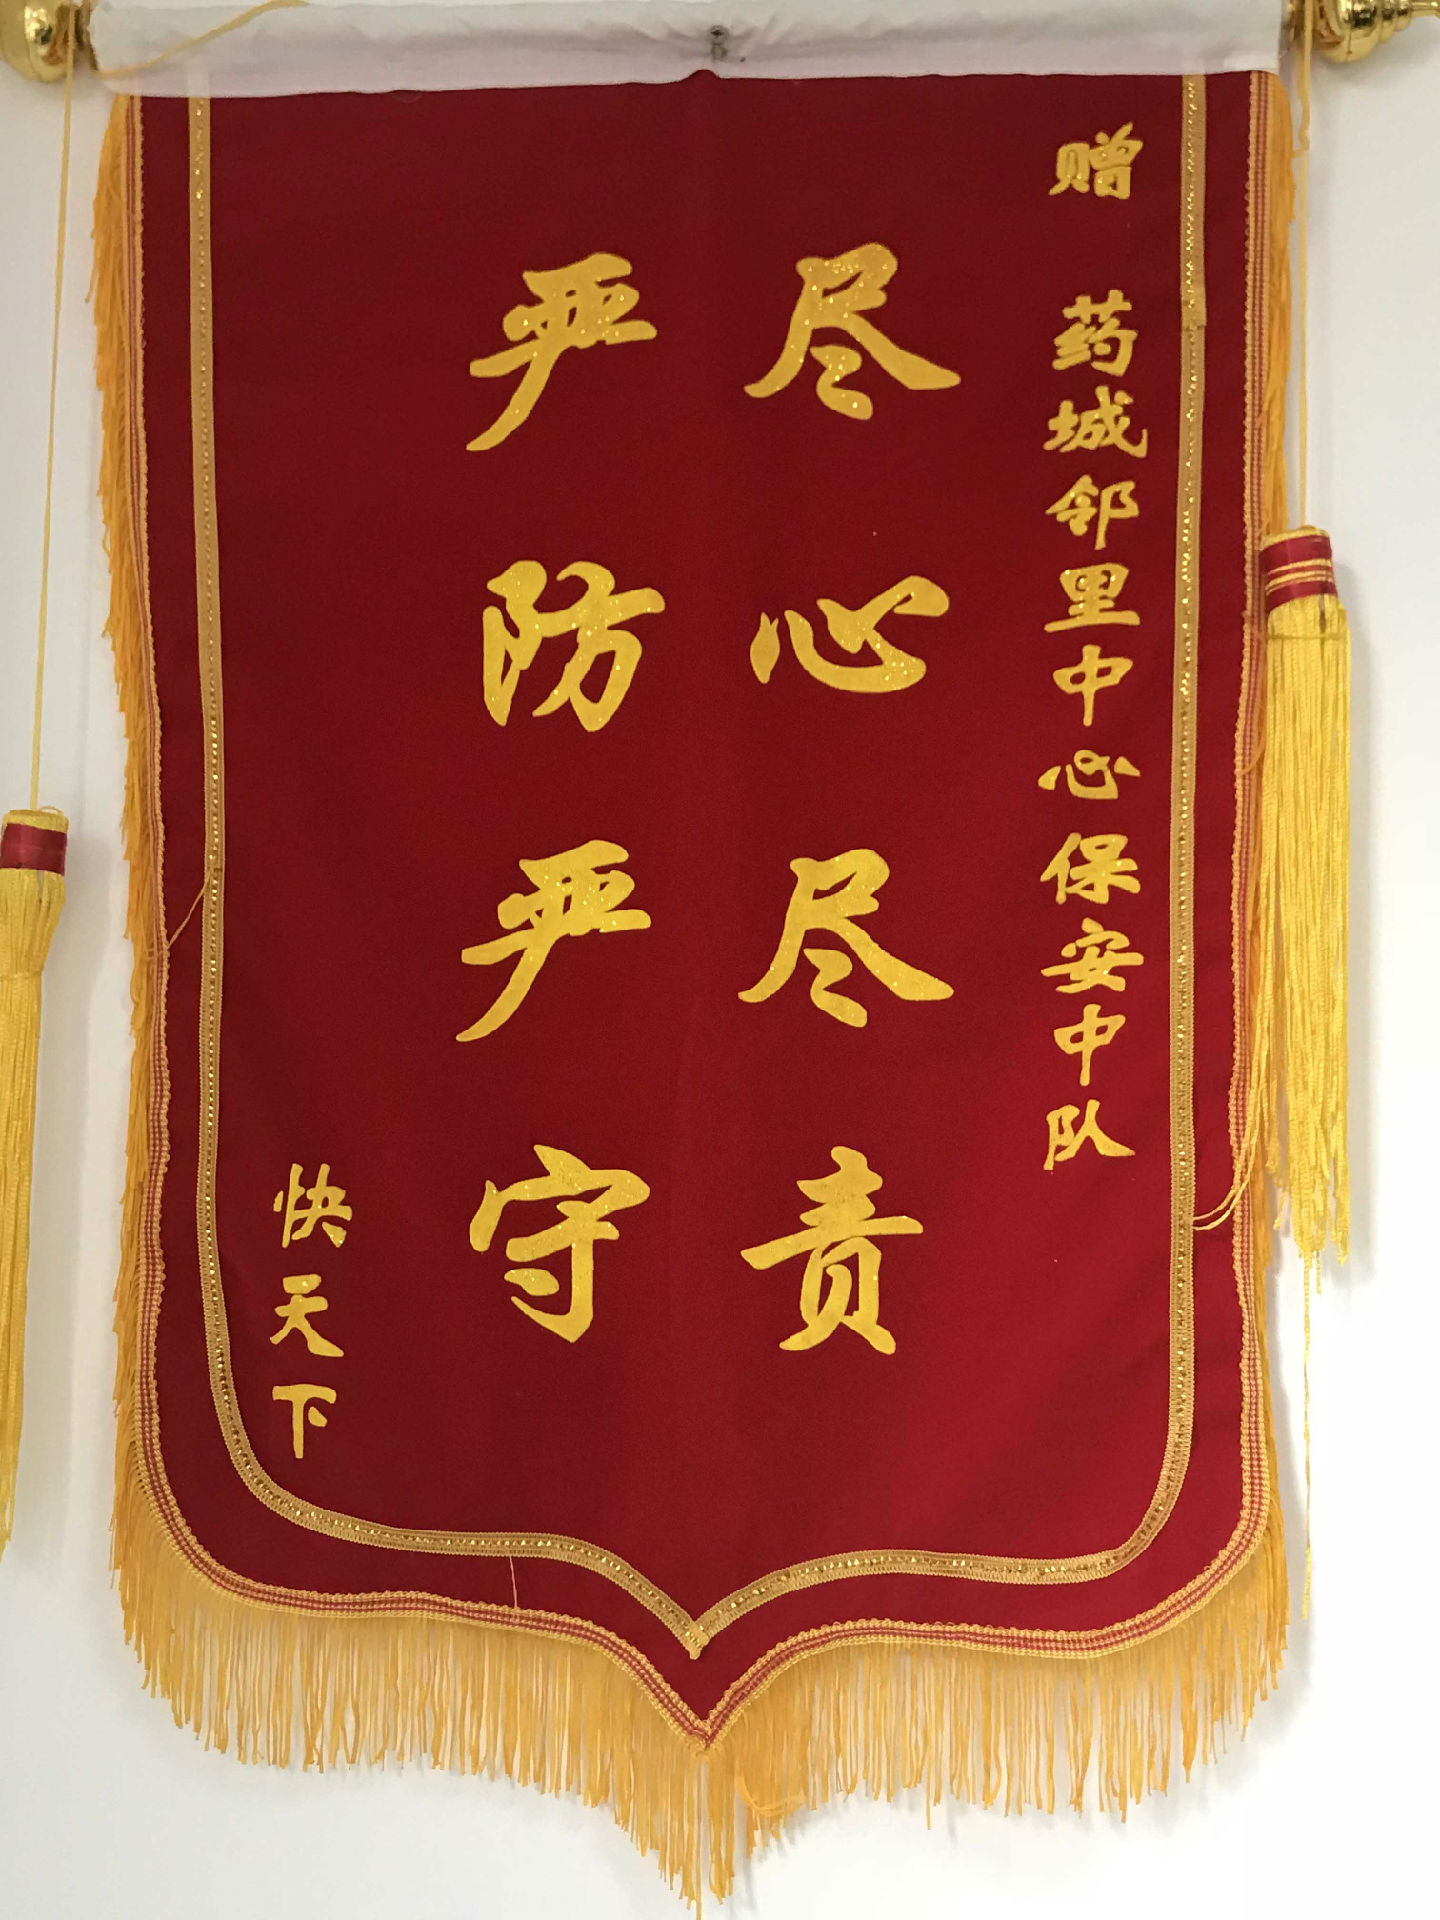 赠 药城邻里中心保安中队
尽心尽责
严防严守
快天下